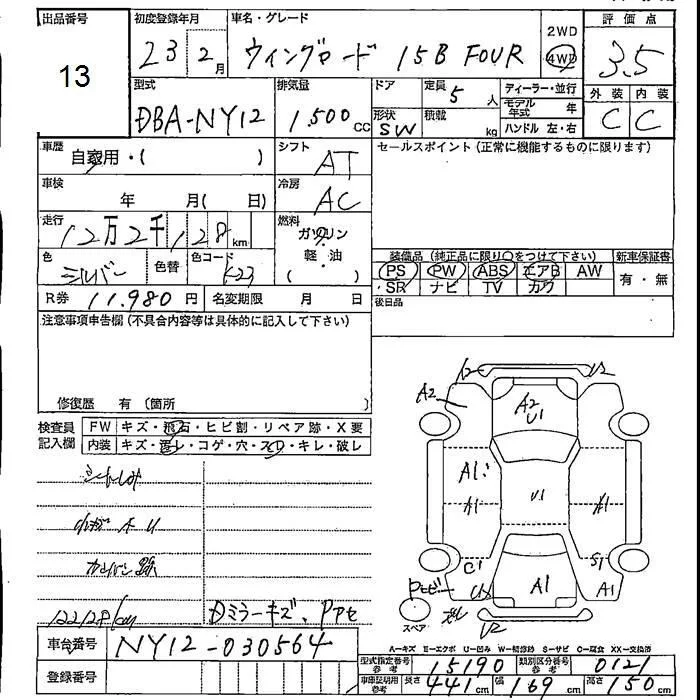 出品番号
13
初度登録年月
23 2月
車名・グレード
ウイングロード 15B FOUR
2WD
4WD
評価点
3.5
型式
DBA-NY12
排気量
1,500 cc
ドア
定員
5 人
形状
SW
積載
kg
ディーラー・並行
モデル年式 年
ハンドル 左・右
外装 内装
C C
車歴
自家用・( )
シフト
AT
セールスポイント(正常に機能するものに限ります)
車検
年 月( 日)
冷房
AC
走行
12万2千128km
燃料
ガソリン
軽・油
( )
色
シルバー
色替
色コード
K23
装備品(純正品に限り○をつけて下さい)
新車保証書
PS PW ABS エアB AW
有・無
SR ナビ TV カワ
R券 11,980円
名変期限 月 日
後日品
注意事項申告欄(不具合内容等は具体的に記入して下さい)
修復歴 有(箇所 )
検査員記入欄
FW キズ・飛石・ヒビ割・リペア跡・X要
内装 キズ・汚レ・コゲ・穴・スレ・キレ・破レ
122128km
Dミラーキズ、
A2
A2
U1
A1
A1
U1
A1
C1
S1
A1
A1
スペア
U2
車台番号
NY12-030564
登録番号
A-キズ E-エクボ U-凹み W-補修跡 S-サビ C-腐食 XX-交換済
型式指定番号
参考
15190
類別区分番号
参考
0121
車庫証明用
参考
長さ 441cm
幅 169cm
高さ 150cm